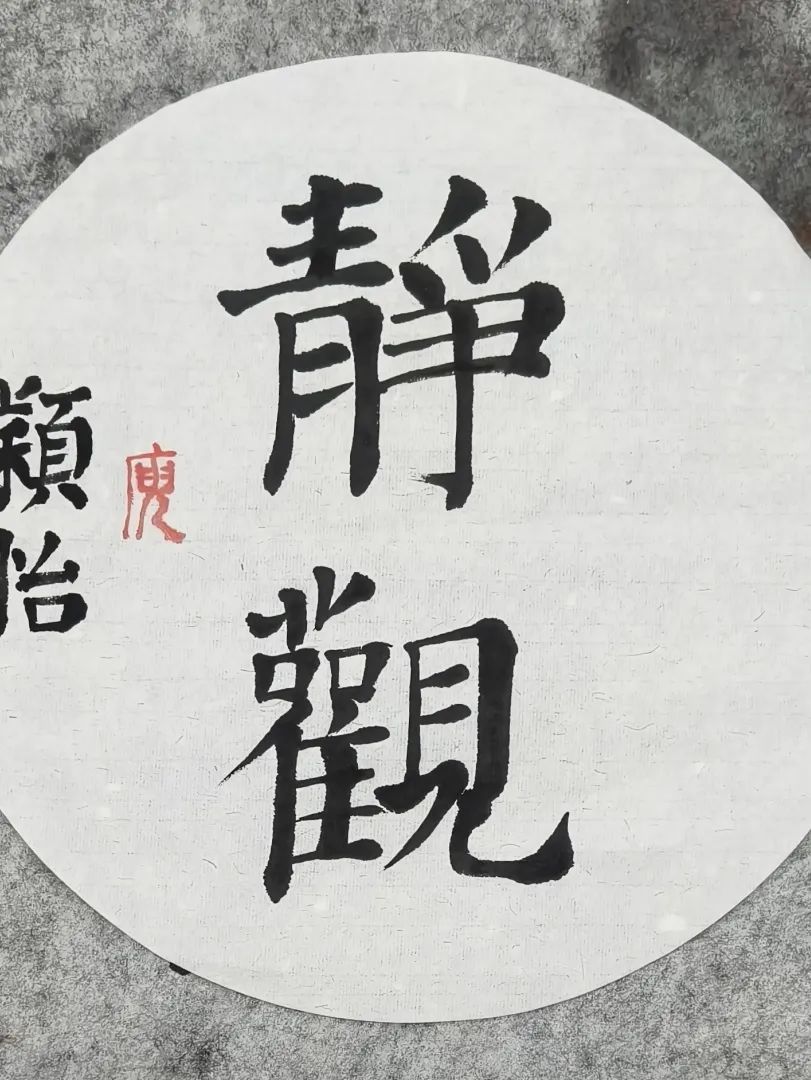 靜觀
穎怡